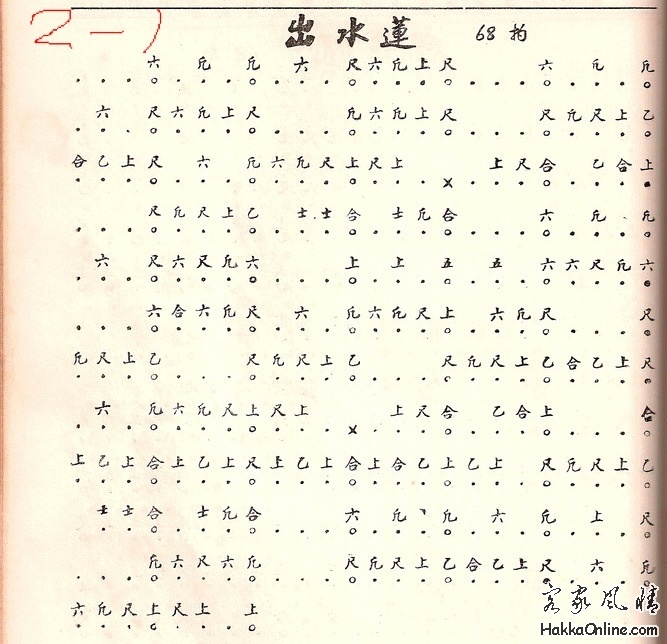 2-1 出水蓮 68拍
六 凡 凡 六 尺 六 凡 上 尺 六 凡 凡
六 尺 六 凡 上 尺 凡 六 凡 上 尺 尺 凡 尺 上 乙
合 乙 上 尺 六 凡 六 凡 尺 上 尺 上 上 尺 合 乙 合 上
尺 凡 尺 上 乙 士 士 合 士 凡 合 六 凡 凡
六 尺 六 尺 凡 六 上 上 五 五 六 六 尺 凡 六
六 合 六 凡 尺 六 凡 六 凡 尺 上 六 凡 尺 尺
凡 尺 上 乙 尺 凡 尺 上 乙 尺 凡 尺 上 乙 合 乙 上 尺
六 凡 六 凡 尺 上 尺 上 上 尺 合 乙 合 上 合
上 乙 上 合 上 乙 上 尺 上 乙 上 合 上 合 乙 上 乙 上 尺 凡 尺 上 乙
士 士 合 士 凡 合 六 凡 凡 六 凡 上 尺
凡 六 尺 六 凡 尺 凡 尺 上 乙 合 乙 上 尺 六 凡
六 凡 尺 上 尺 上 上
客家風情
HakkaOnline.com